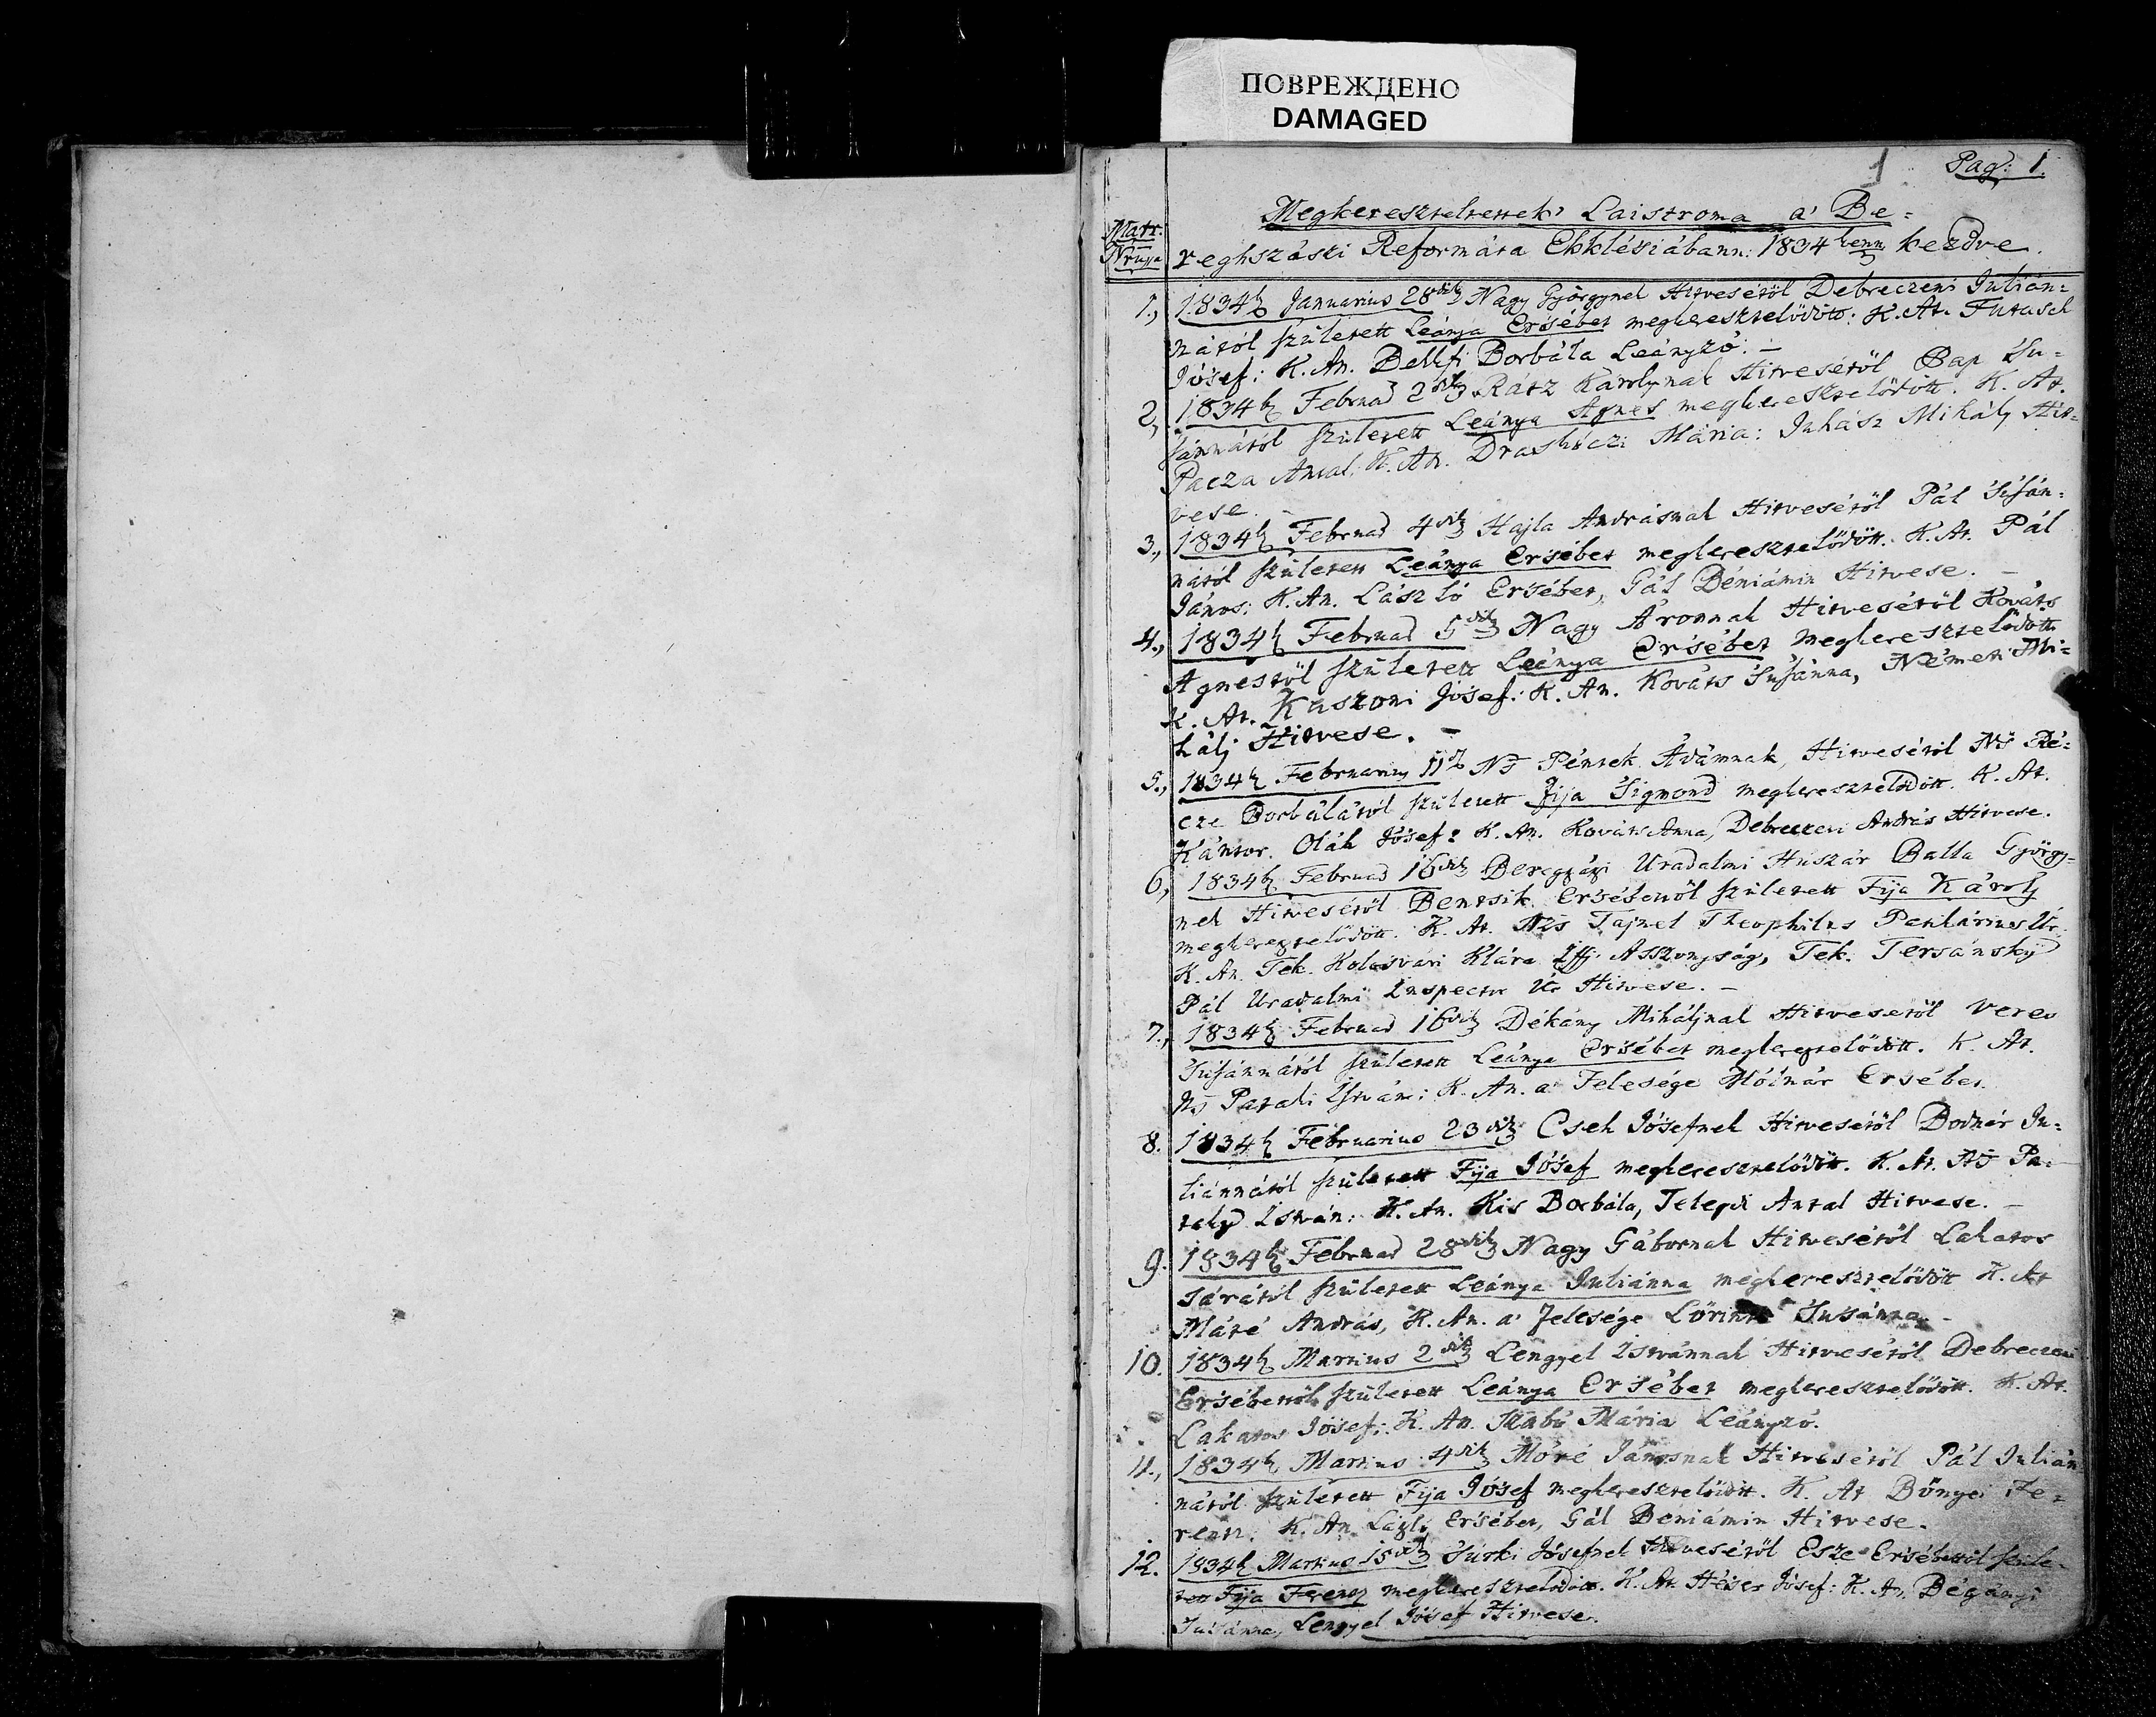 ПОВРЕЖДЕНО
DAMAGED
1 Pag: 1.
Megkereszteltettek' Laistroma a' Be=
Matr.
reghszászi Reformáta Ekklésiábann: 1834benn kezdve.
1., 1834b Januarius 28dik Nagy Györgynek Hitvesétöl Debreczeni Julián=
nától született Leánya Ersébet megkeresztelödött: K. At. Futasch
Jósef: K. An. Dellfi Borbála Leányzó. –
2, 1834b Februad 2dik Rátz Károlynak Hitvesétöl Pap Su=
sánnától született Leánya Agnes megkeresztelödött. K. At.
Pacza Antal. K. An. Draskóczi Mária: Juhász Mihálÿ Hit=
vese. –
3., 1834b Februad 4dik Hajla Andrásnak Hitvesétöl Pál Susán=
nától született Leánya Ersébet megkeresztelödött. K. At. Pál
János: K. An. László Ersébet, Gál Béniámin Hitvese. –
4., 1834b Februad 5dik Nagy Áronnak Hitvesétöl Kováts
Agnestöl született Leánya Ersébet megkeresztelödött
K. At. Kaszoni Jósef: K. An. Kováts Susánna, Németi Mi=
hálÿ Hitvese. –
5., 1834b Februarius 11d Ns Péntek Ádámnak, Hitvesétöl Ns Ré=
cze Borbálától született Fija Sigmond megkeresztelödött. K. At.
Kántor. Oláh Jósef: K. An. Kováts Anna, Debreczeni András Hitvese.
6, 1834b Februad 16dik Beregszászi Uradalmi Huszár Balla György=
nek Hitvesétöl Bentsik Ersébettöl született Fija Károly
megkeresztelödött. K. At. Tajnel Theophilus Úr.
K. An. Tek. Kolosvári Klára Iffj Asszonyság, Tek. Tersánskÿ
Pál Uradalmi Inspector Úr Hitvese. –
7., 1834b Februad 16dik Dékány Mihálynak Hitvesétöl Veres
Susánnától született Leánya Ersébet megkeresztelödött. K. At.
Ns Pataki István: K. An. a' Felesége Mólnár Ersébet.
8. 1834b Februarius 23dik Cseh Jósefnek Hitvesétöl Bodnár Ju=
liánnától született Fija Jósef megkeresztelödött. K. At. Ns Pa=
takÿ István: K. An. Kis Borbála, Telegdi Antal Hitvese. –
9. 1834b Februad 28dik Nagy Gábornak Hitvesétöl Lakatos
Sárától született Leánya Juliánna megkeresztelödött K. At
Máté András, K. An. a' felesége Lörintz Susánna. –
10. 1834b Martius 2dik Lengyel Istvánnak Hitvesétöl Debreczeni
Ersébettöl született Leánya Ersébet megkeresztelödött. K. At.
Lakatos Jósef: K. An. Szabó Mária Leányzó.
11., 1834b Martius 4dik Móré Jánosnak Hitvesétöl Pál Julián
nától született Fija Jósef megkeresztelödött. K. At Bönyei Fe=
rentz. K. An. László Ersébet, Gál Béniámin Hitvese.
12. 1834b Martius 15dik Jósefnek Hitvesétöl Esze Ersébettöl szüle=
tett Fija Ferencz megkeresztelödött. K. At. Héser Jósef: K. An. Bégányi
Susánna, Lengyel Jósef Hitvese.